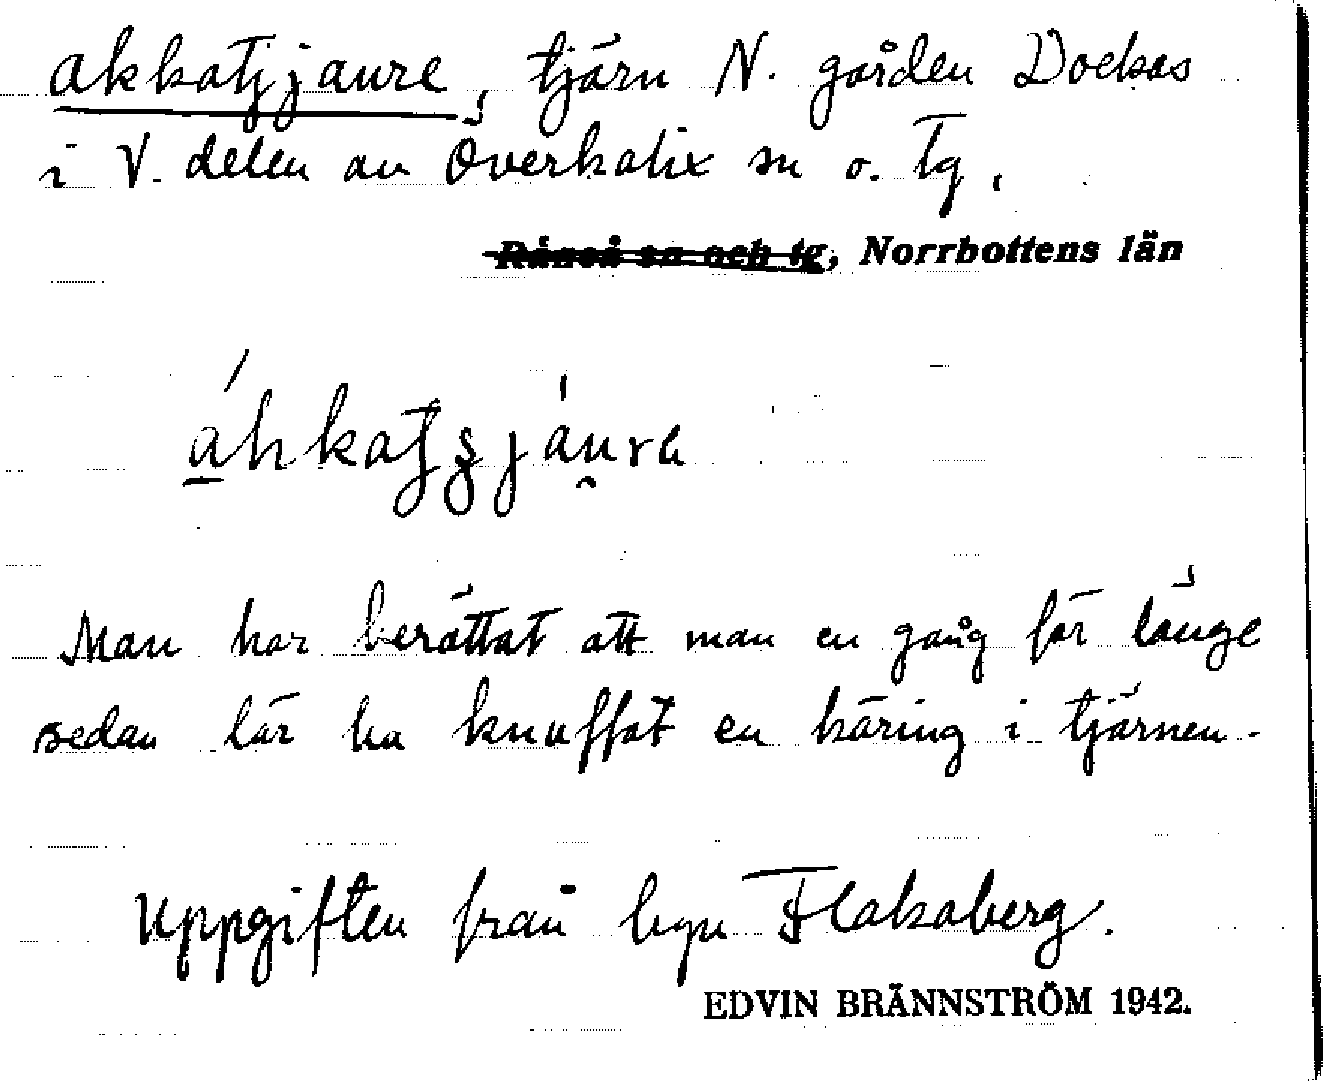 akkatjjaure, tjärn N. gården Dockas
i V. delen av Överkalix sn o. tg,
Råneå sn och tg, Norrbottens län
áhkatʃʒjáu̯re
Man har berättat att man en gång för länge
sedan lär ha knuffat en käring i tjärnen.
Uppgiften från byn Flakaberg.
EDVIN BRÄNNSTRÖM 1942.